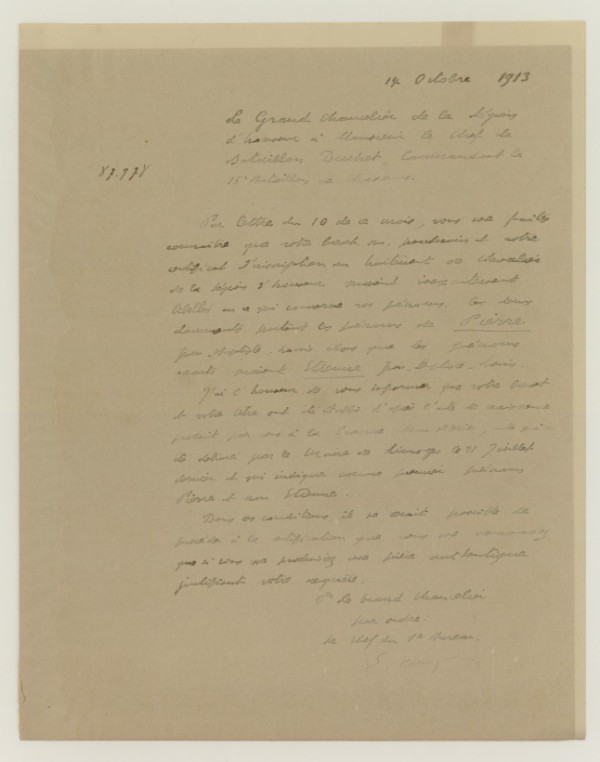 14 Octobre 1913
Le Grand Chancelier de la Légion
d'honneur à Monsieur le Chef de
Bataillon Duchet, Commandant le
15e Bataillon de Chasseurs.
87.978
Par lettre du 10 de ce mois, vous me faites
connaître que votre brevet ou et votre
certificat d'inscription au traitement de chevalier
de la Légion d'honneur inexactement
établis en ce qui concerne vos prénoms. Ces deux
documents portant les prénoms de Pierre
alors que les prénoms
exacts seraient Etienne
J'ai l'honneur de vous informer que votre brevet
et votre titre ont été établis d'après l'acte de naissance
produit par vous à la Grande Chancellerie,
délivré par le Maire de Limoges le 21 Juillet
dernier et qui indique comme premier prénom
Pierre et non Etienne.
Dans ces conditions, il ne serait possible de
procéder à la rectification que vous me demandez
que si vous me produisiez une pièce authentique
justifiant votre requête.
Pr Le Grand Chancelier
par ordre:
Le Chef du 1er Bureau.